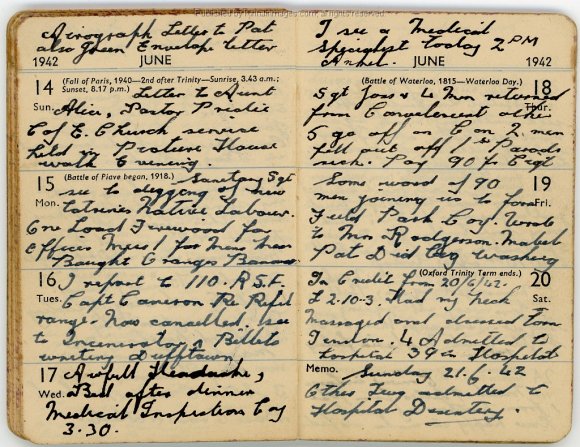 Aerograph Letter to Pat
also Green Envelope letter
1942 JUNE
14 (Fall of Paris, 1940—2nd after Trinity—Sunrise, 3.43 a.m.;
Sunset, 8.17 p.m.) Letter to Aunt
Sun. Alice, Pastor
C of E. Church service
held in House
Evening.
15 (Battle of Piave began, 1918.) Sanitary Sgt
see to digging of new
Mon. latrines Native Labour.
One Load Firewood for
Officers Mess 1 for Men
Bought Oranges
16 I report to 110. R.S.F.
Tues. Capt Cameron. Re Rifle
range. Now cancelled. see
to Incinerator, Billets
writing Dufftown
17 Awfull Headache,
Wed. Bed after dinner
Medical Inspection Coy
3.30.
I see a Medical
Specialist today 2 PM
JUNE 1942
(Battle of Waterloo, 1815—Waterloo Day.) 18
Sgt & 4 Men returned
Thur.
from Convalescent other
5 go off on 2 men
fell out off 1st Parade
sick. Pay 90 for Egpt
Some word of 90 19
men joining us to form
Fri.
Field Park Coy. Wrote
to Mrs Rodgerson. Mabel
Pat Did my Washing
(Oxford Trinity Term ends.) 20
In Credit from 20/6/42.
£ 2-10-3. Had my neck
Sat.
Massaged and dressed Torn
Tendon. 4 Admitted to
hospital 39 in Hospital
Memo. Sunday 21.6.42
Other admitted to
Hospital Desentery.